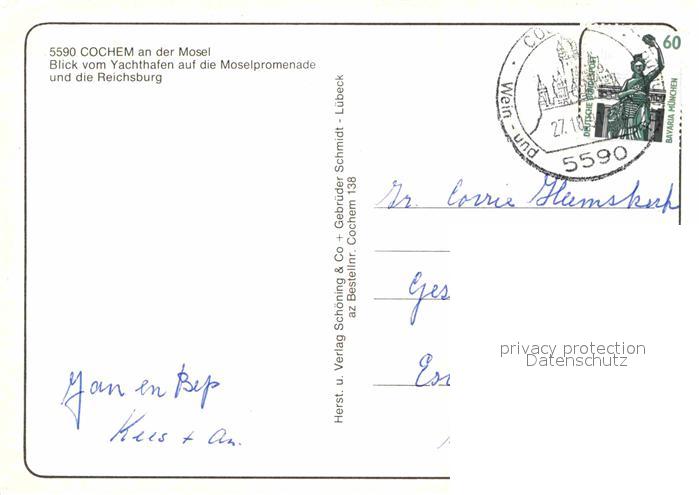 5590 COCHEM an der Mosel
Blick vom Yachthafen auf die Moselpromenade
und die Reichsburg
Herst. u. Verlag Schöning & Co + Gebrüder Schmidt - Lübeck
az Bestellnr. Cochem 138
CO
· Wein - und -
27.10
5590
60
DEUTSCHE BUNDESPOST
BAVARIA MÜNCHEN
Corrie Heemskerk
Ges
privacy protection
Datenschutz
Jan en Bep
Kees + An.